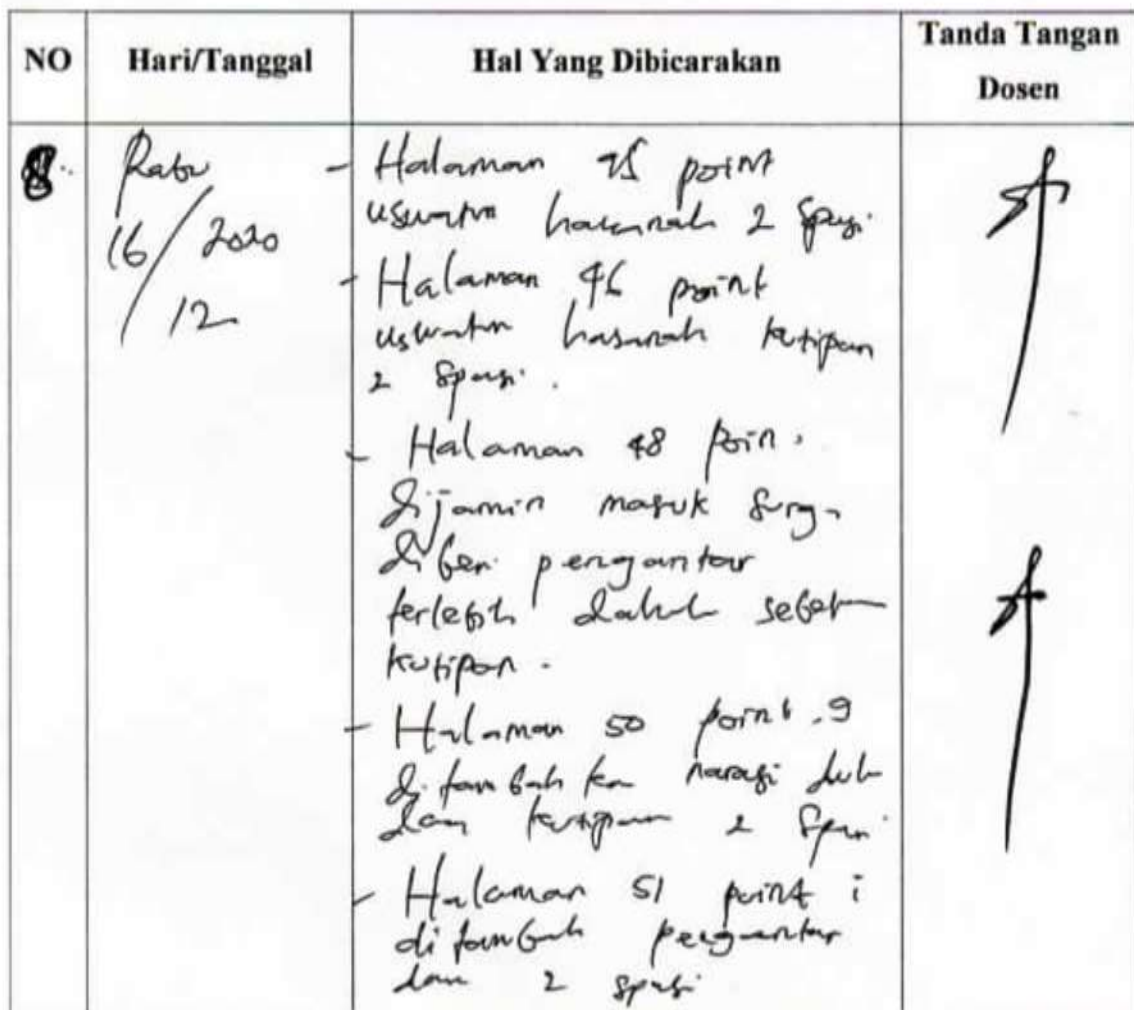 NO Hari/Tanggal Hal Yang Dibicarakan Tanda Tangan Dosen
8. Rabu
16/2020
/12
- Halaman 45 point
uswatun hasanah 2 spasi.
- Halaman 46 point
uswatun hasanah kutipan
2 spasi.
- Halaman 48 poin.
dijamin masuk surga
diberi pengantar
terlebih dahulu sebelum
kutipan.
- Halaman 50 point. 9
ditambahkan narasi dulu
dan kutipan 2 spasi
- Halaman 51 point i
ditambah pengantar
dan 2 spasi